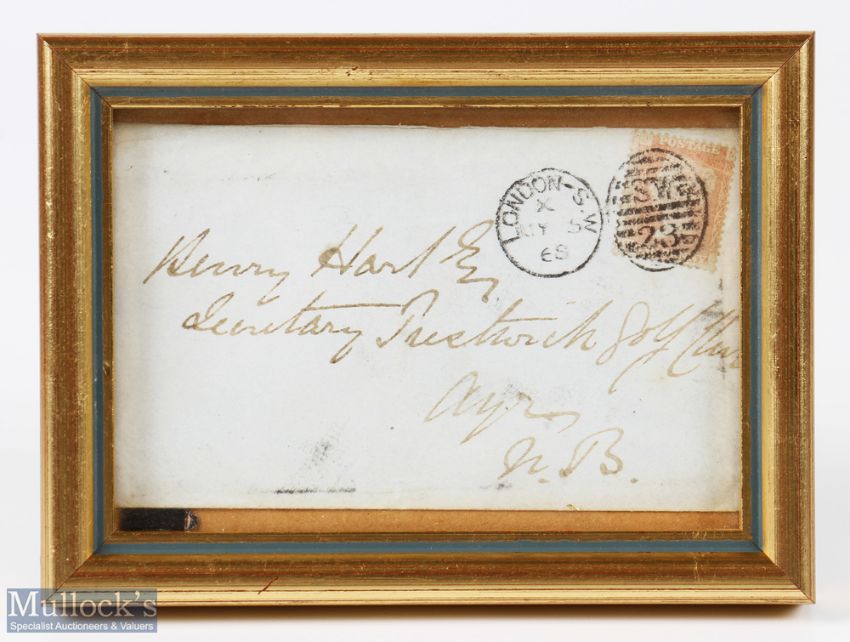 POSTAGE
LONDON-S.W
X
MY 5
68
S.W
23
Henry Hart Eq
Secretary Prestwick Golf Club
Ayr
N.B.
Mullock's
Specialist Auctioneers & Valuers